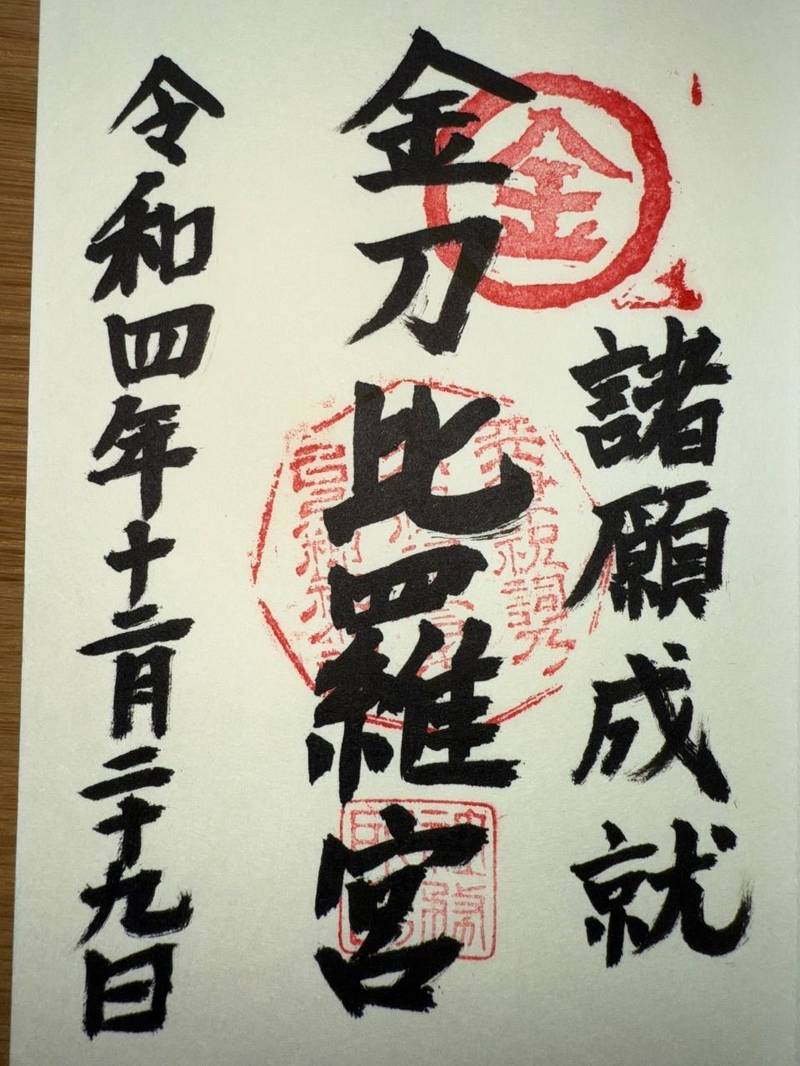 諸願成就
金
金刀比羅宮
令和四年十二月二十九日